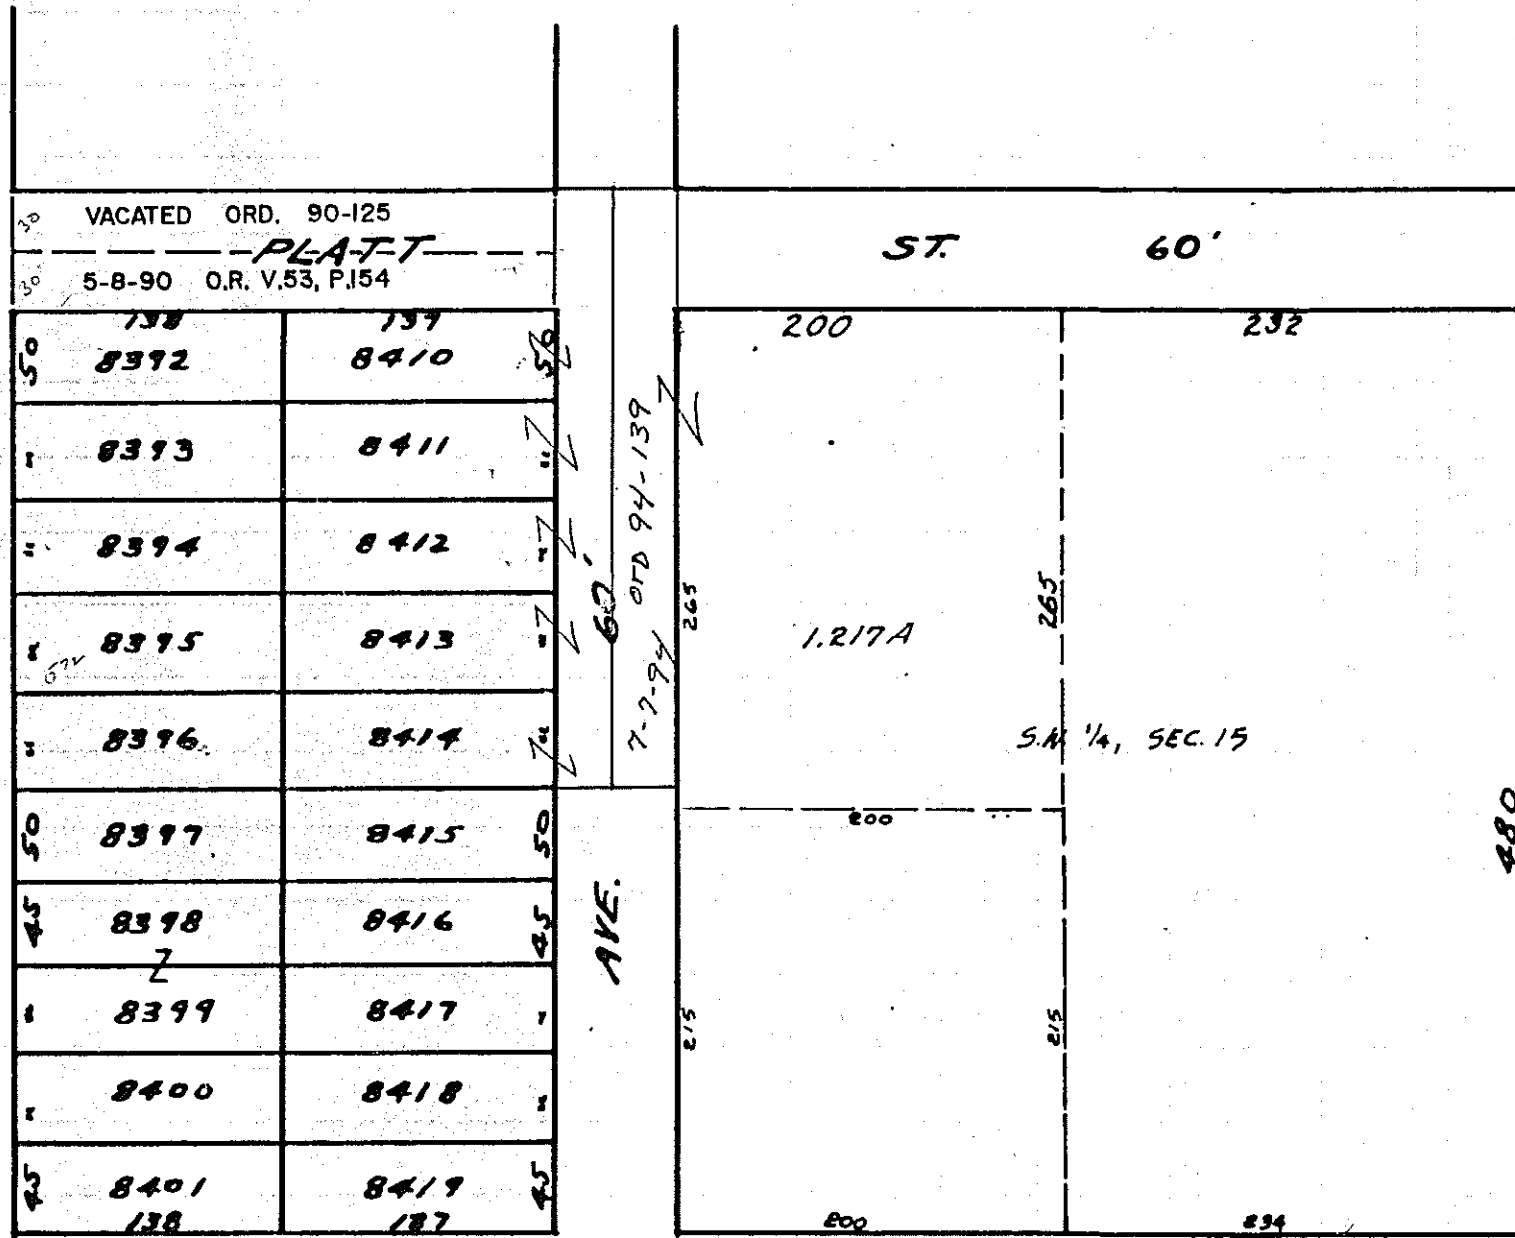 30 VACATED ORD. 90-125
PLATT ST. 60'
30 5-8-90 O.R. V.53, P.154
138 139 200 232
50 8392 8410 50
" 8393 8411 "
" 8394 8412 "
" 8395 8413 "
" 8396 8414 "
50 8397 8415 50
45 8398 8416 45
8399 8417
" 8400 8418 "
45 8401 8419 45
138 137
60' AVE.
7-7-94 OrD 94-139
265
1.217A
265
S.W. 1/4, SEC. 15
200
480
215
215
200 234